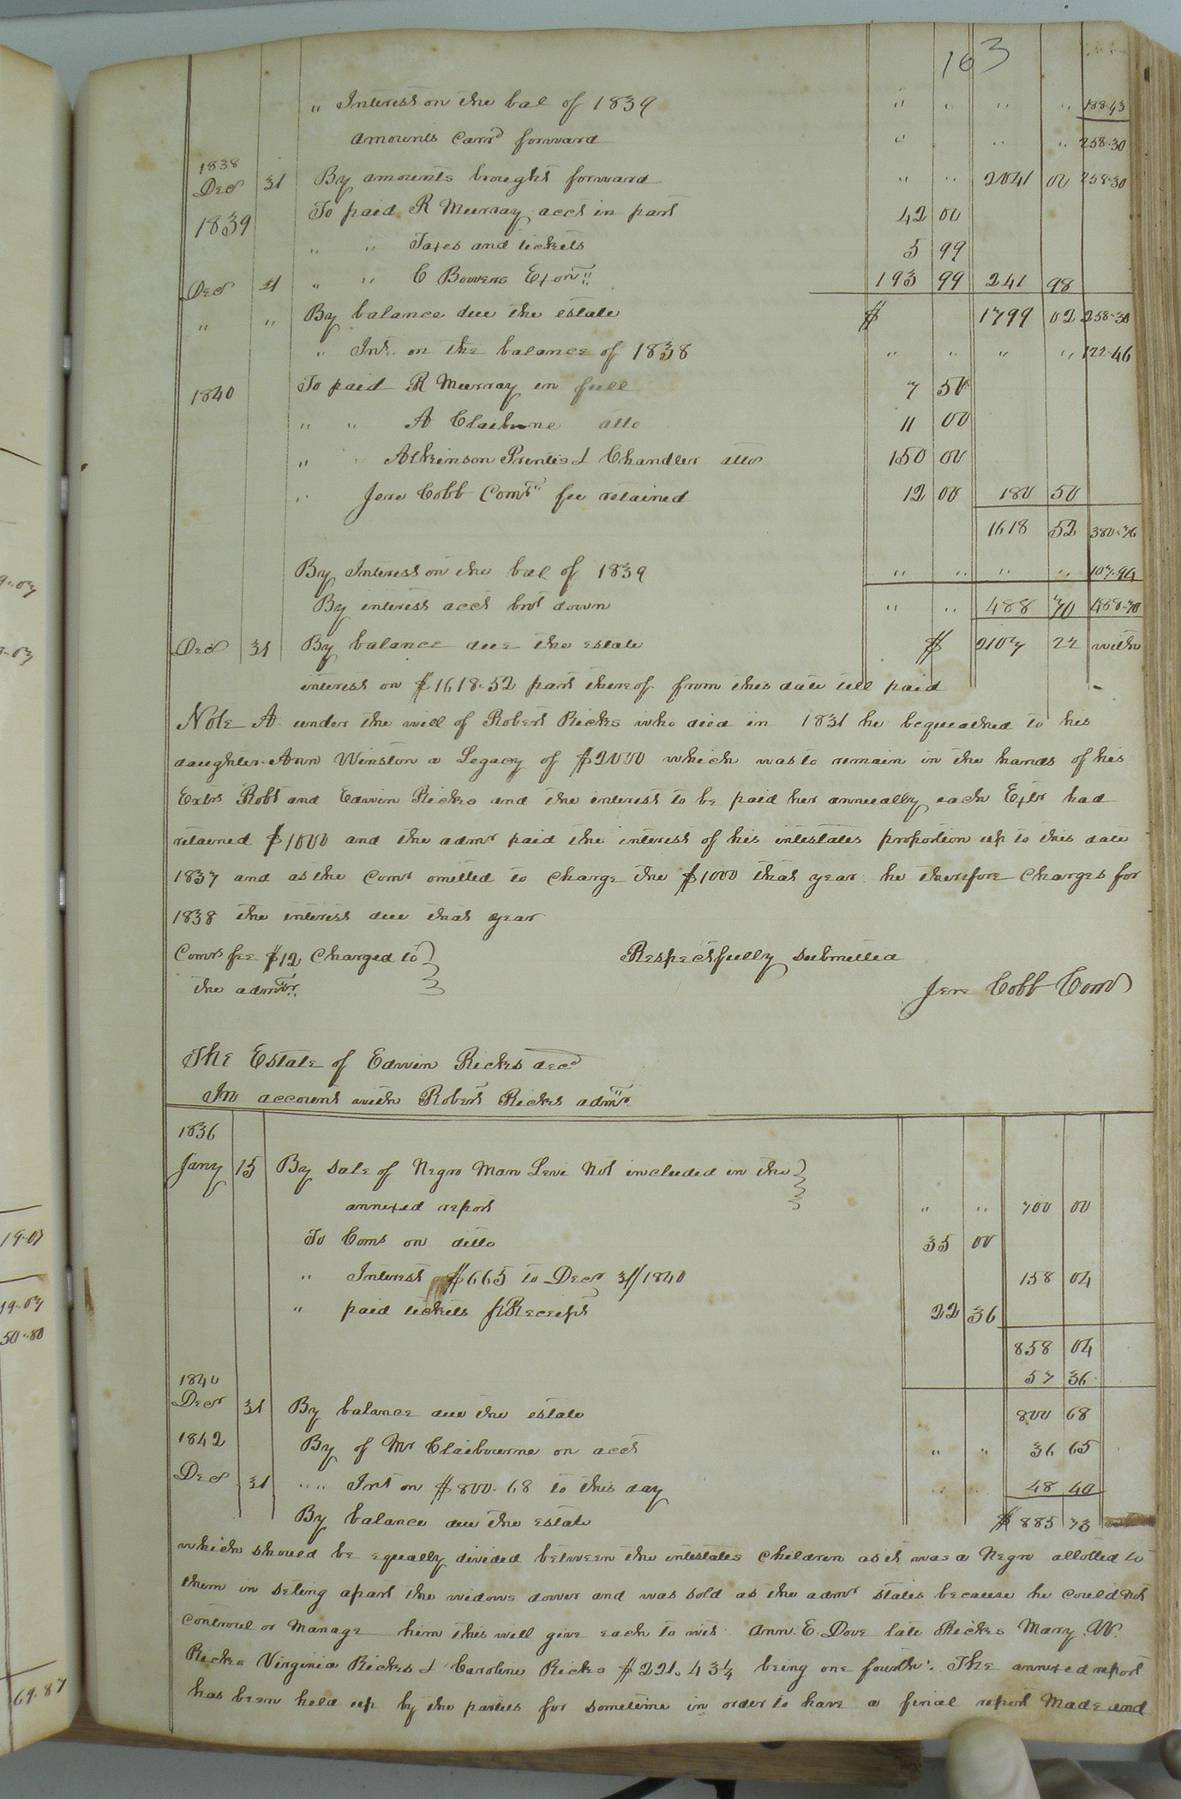 163
" Interest on the bal of 1839 " " " " 188.43
amounts Carrd forward " " " 258.30
1838
Decr 31 By amounts brought forward " " 2041 00 258.30
1839 To paid R Murray acct in part 42 00
" " Taxes and tickets 5 99
Decr 31 " " C Bowers Exor 193 99 241 98
" " By balance due the estate $ 1799 02 258.30
" Int. on the balance of 1838 " " " " 122.46
1840 To paid R Murray in full 7 50
" " A Claiborne ditto 11 00
" " Atkinson Prentis & Chandler ditto 150 00
" Jere Cobb Comr fee retained 12 00 180 50
1618 52 380.76
By Interest on the bal of 1839 " " " " 107.94
By interest acct brot down " " 488 70 488.70
Decr 31 By balance due the estate $ 2107 22 with
interest on $1618.52 part thereof from this date till paid
Note A under the will of Robert Ricks who died in 1831 he bequeathed to his
daughter Ann Winston a Legacy of $2000 which was to remain in the hands of his
Exors Robt and Edwin Ricks and the interest to be paid her annually each Exor had
retained $1000 and the admr paid the interest of his intestates proportion up to this date
1837 and as the Comr omitted to charge the $1000 that year he therefore Charges for
1838 the interest due that year
Comrs fee $12 Charged to Respectfully submitted
the admr Jere Cobb Comr
The Estate of Edwin Ricks decd
In account with Robert Ricks admr
1836
Jany 15 By Sale of Negro Man Levi Not included in the
annexed report " " 700 00
To Coms on ditto 35 00
" Interest $665 to Decr 31/1840 158 04
" paid tickets pr Receipt 22 36
858 04
1840 57 36
Decr 31 By balance due the estate 800 68
1842 By of Mr Claibourne on acct " " 36 65
Decr 31 " " Int on $800.68 to this day " " 48 40
By balance due the estate $ 885 73
which should be equally divided between the intestates Children as it was a Negro allotted to
them in seting apart the widows dower and was sold as the admr states because he could not
Controul or Manage him this will give each to wit Ann E. Dove late Ricks Mary W.
Ricks Virginia Ricks & Caroline Ricks $221.43¼ being one fourth. The annexed report
has been held up by the parties for sometime in order to have a final report Made and
19.07
19.03
50.80
69.87